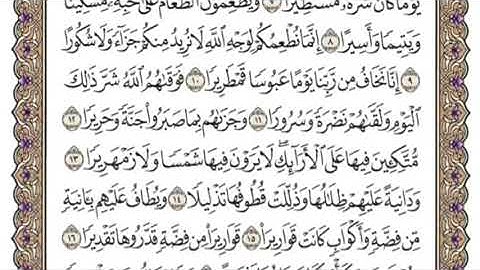 يَوْمًا كَانَ شَرُّهُۥ مُسْتَطِيرًا ٧ وَيُطْعِمُونَ ٱلطَّعَامَ عَلَىٰ حُبِّهِۦ مِسْكِينًا
وَيَتِيمًا وَأَسِيرًا ٨ إِنَّمَا نُطْعِمُكُمْ لِوَجْهِ ٱللَّهِ لَا نُرِيدُ مِنكُمْ جَزَآءً وَلَا شُكُورًا
٩ إِنَّا نَخَافُ مِن رَّبِّنَا يَوْمًا عَبُوسًا قَمْطَرِيرًا ١٠ فَوَقَىٰهُمُ ٱللَّهُ شَرَّ ذَٰلِكَ
ٱلْيَوْمِ وَلَقَّىٰهُمْ نَضْرَةً وَسُرُورًا ١١ وَجَزَىٰهُم بِمَا صَبَرُوا۟ جَنَّةً وَحَرِيرًا ١٢
مُّتَّكِـِٔينَ فِيهَا عَلَى ٱلْأَرَآئِكِ ۖ لَا يَرَوْنَ فِيهَا شَمْسًا وَلَا زَمْهَرِيرًا ١٣
وَدَانِيَةً عَلَيْهِمْ ظِلَٰلُهَا وَذُلِّلَتْ قُطُوفُهَا تَذْلِيلًا ١٤ وَيُطَافُ عَلَيْهِم بِـَٔانِيَةٍ
مِّن فِضَّةٍ وَأَكْوَابٍ كَانَتْ قَوَارِيرَا۠ ١٥ قَوَارِيرَا۟ مِن فِضَّةٍ قَدَّرُوهَا تَقْدِيرًا ١٦